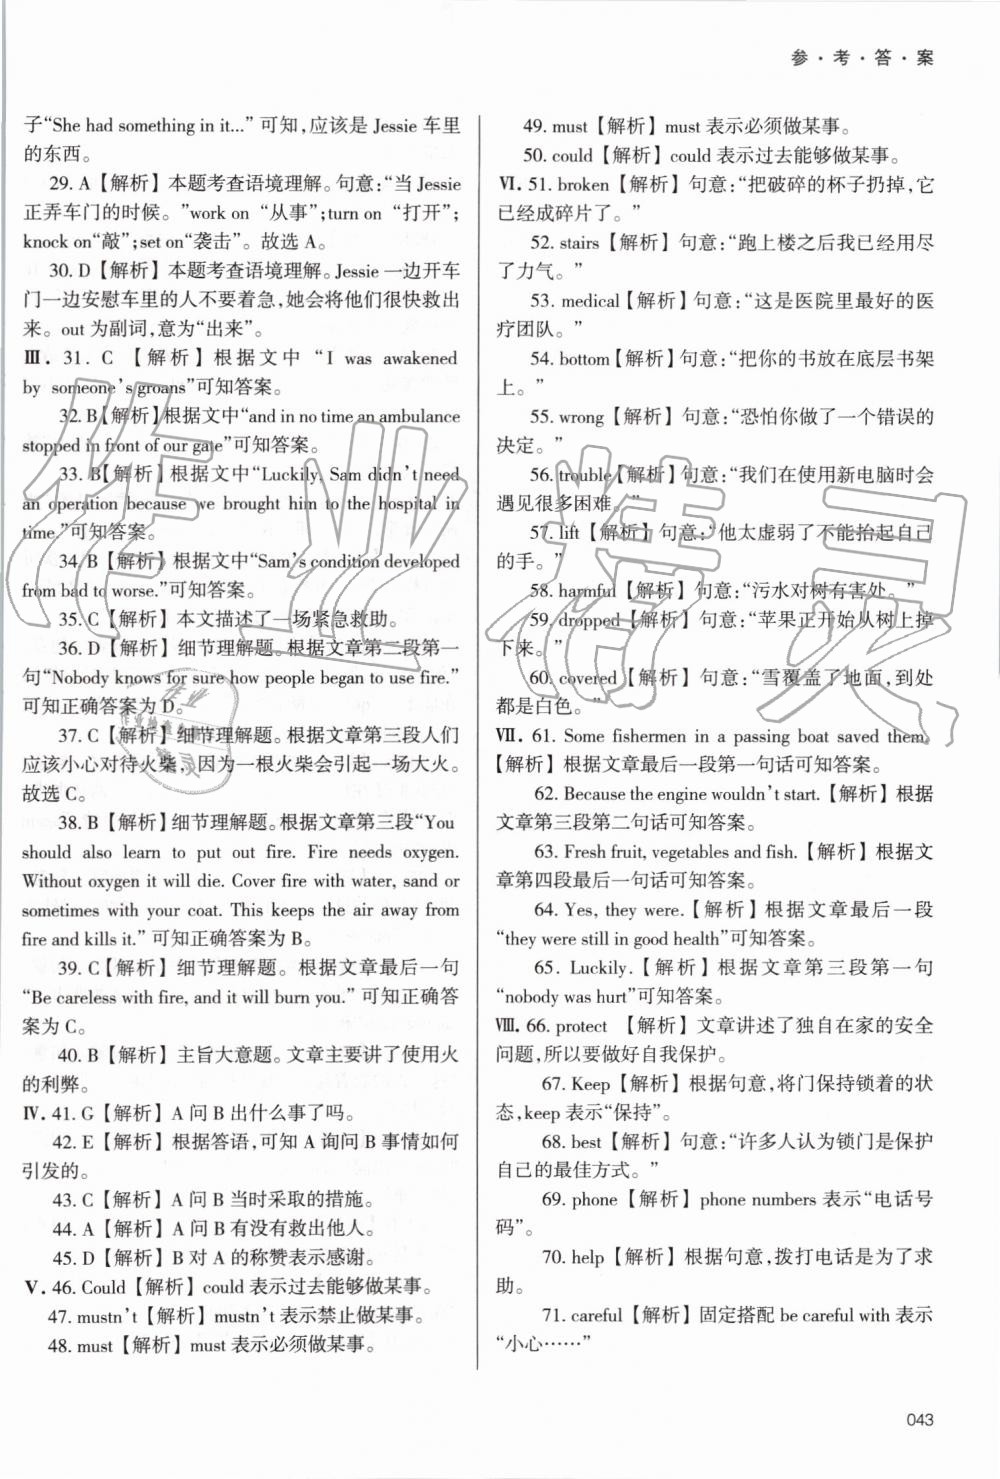 参·考·答·案
子“She had something in it...”可知,应该是 Jessie 车里
的东西。
29. A【解析】本题考查语境理解。句意:“当 Jessie
正弄车门的时候。”work on “从事”;turn on “打开”;
knock on“敲”;set on“袭击”。故选 A。
30. D【解析】本题考查语境理解。Jessie 一边开车
门一边安慰车里的人不要着急,她会将他们很快救出
来。out 为副词,意为“出来”。
Ⅲ. 31. C 【解析】根据文中 “I was awakened
by someone’s groans”可知答案。
32. B【解析】根据文中“and in no time an ambulance
stopped in front of our gate”可知答案。
33. B【解析】根据文中“Luckily, Sam didn’t need
an operation because we brought him to the hospital in
time.”可知答案。
34. B【解析】根据文中“Sam’s condition developed
from bad to worse.”可知答案。
35. C【解析】本文描述了一场紧急救助。
36. D【解析】细节理解题。根据文章第二段第一
句“Nobody knows for sure how people began to use fire.”
可知正确答案为 D。
37. C【解析】细节理解题。根据文章第三段人们
应该小心对待火柴, 因为一根火柴会引起一场大火。
故选 C。
38. B【解析】细节理解题。根据文章第三段“You
should also learn to put out fire. Fire needs oxygen.
Without oxygen it will die. Cover fire with water, sand or
sometimes with your coat. This keeps the air away from
fire and kills it.” 可知正确答案为 B。
39. C【解析】细节理解题。根据文章最后一句
“Be careless with fire, and it will burn you.” 可知正确答
案为 C。
40. B【解析】主旨大意题。文章主要讲了使用火
的利弊。
Ⅳ. 41. G【解析】A 问 B 出什么事了吗。
42. E【解析】根据答语,可知 A 询问 B 事情如何
引发的。
43. C【解析】A 问 B 当时采取的措施。
44. A【解析】A 问 B 有没有救出他人。
45. D【解析】B 对 A 的称赞表示感谢。
Ⅴ. 46. Could【解析】could 表示过去能够做某事。
47. mustn’t【解析】mustn’t 表示禁止做某事。
48. must【解析】must 表示必须做某事。
49. must【解析】must 表示必须做某事。
50. could【解析】could 表示过去能够做某事。
Ⅵ. 51. broken【解析】句意:“把破碎的杯子扔掉,它
已经成碎片了。”
52. stairs【解析】句意:“跑上楼之后我已经用尽
了力气。”
53. medical【解析】句意:“这是医院里最好的医
疗团队。”
54. bottom【解析】句意:“把你的书放在底层书架
上。”
55. wrong【解析】句意:“恐怕你做了一个错误的
决定。”
56. trouble【解析】句意:“我们在使用新电脑时会
遇见很多困难。”
57. lift【解析】句意:“他太虚弱了不能举起自己
的手。”
58. harmful【解析】句意:“污水对树有害处。”
59. dropped【解析】句意:“苹果正开始从树上掉
下来。”
60. covered【解析】句意:“雪覆盖了地面,到处
都是白色。”
Ⅶ. 61. Some fishermen in a passing boat saved them.
【解析】根据文章最后一段第一句话可知答案。
62. Because the engine wouldn’t start.【解析】根据
文章第三段第二句话可知答案。
63. Fresh fruit, vegetables and fish.【解析】根据文
章第四段最后一句话可知答案。
64. Yes, they were.【解析】根据文章最后一段
“they were still in good health”可知答案。
65. Luckily.【解析】根据文章第三段第一句
“nobody was hurt”可知答案。
Ⅷ. 66. protect 【解析】文章讲述了独自在家的安全
问题,所以要做好自我保护。
67. Keep【解析】根据句意,将门保持锁着的状
态,keep 表示“保持”。
68. best【解析】句意:“许多人认为锁门是保护
自己的最佳方式。”
69. phone【解析】phone numbers 表示“电话号
码”。
70. help【解析】根据句意,拨打电话是为了求
助。
71. careful【解析】固定搭配 be careful with 表示
“小心……”
043
作业精灵